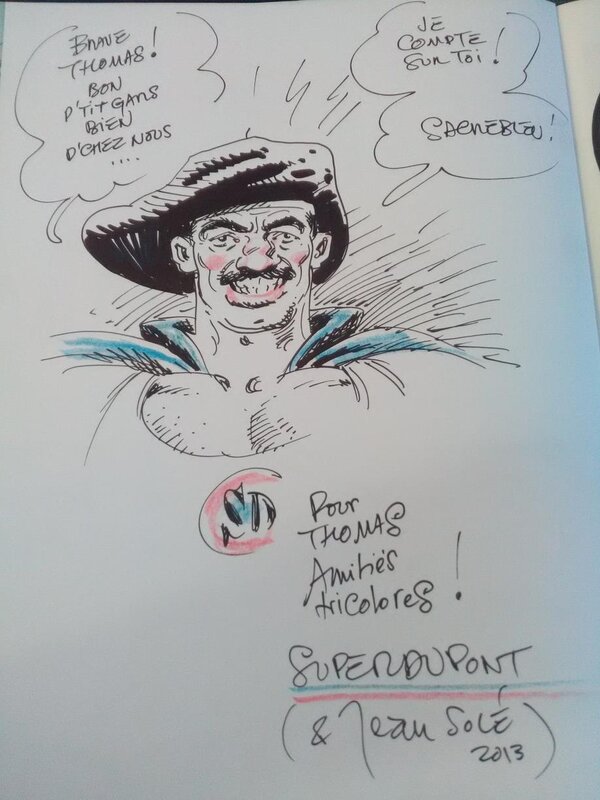 BRAVE
THOMAS!
BON
P'TIT GARS
BIEN
D'CHEZ NOUS
....
JE
COMPTE
SUR TOI!
SACREBLEU!
SD
Pour
THOMAS
Amitiés
tricolores!
SUPERDUPONT
(& Jean SOLÉ)
2013